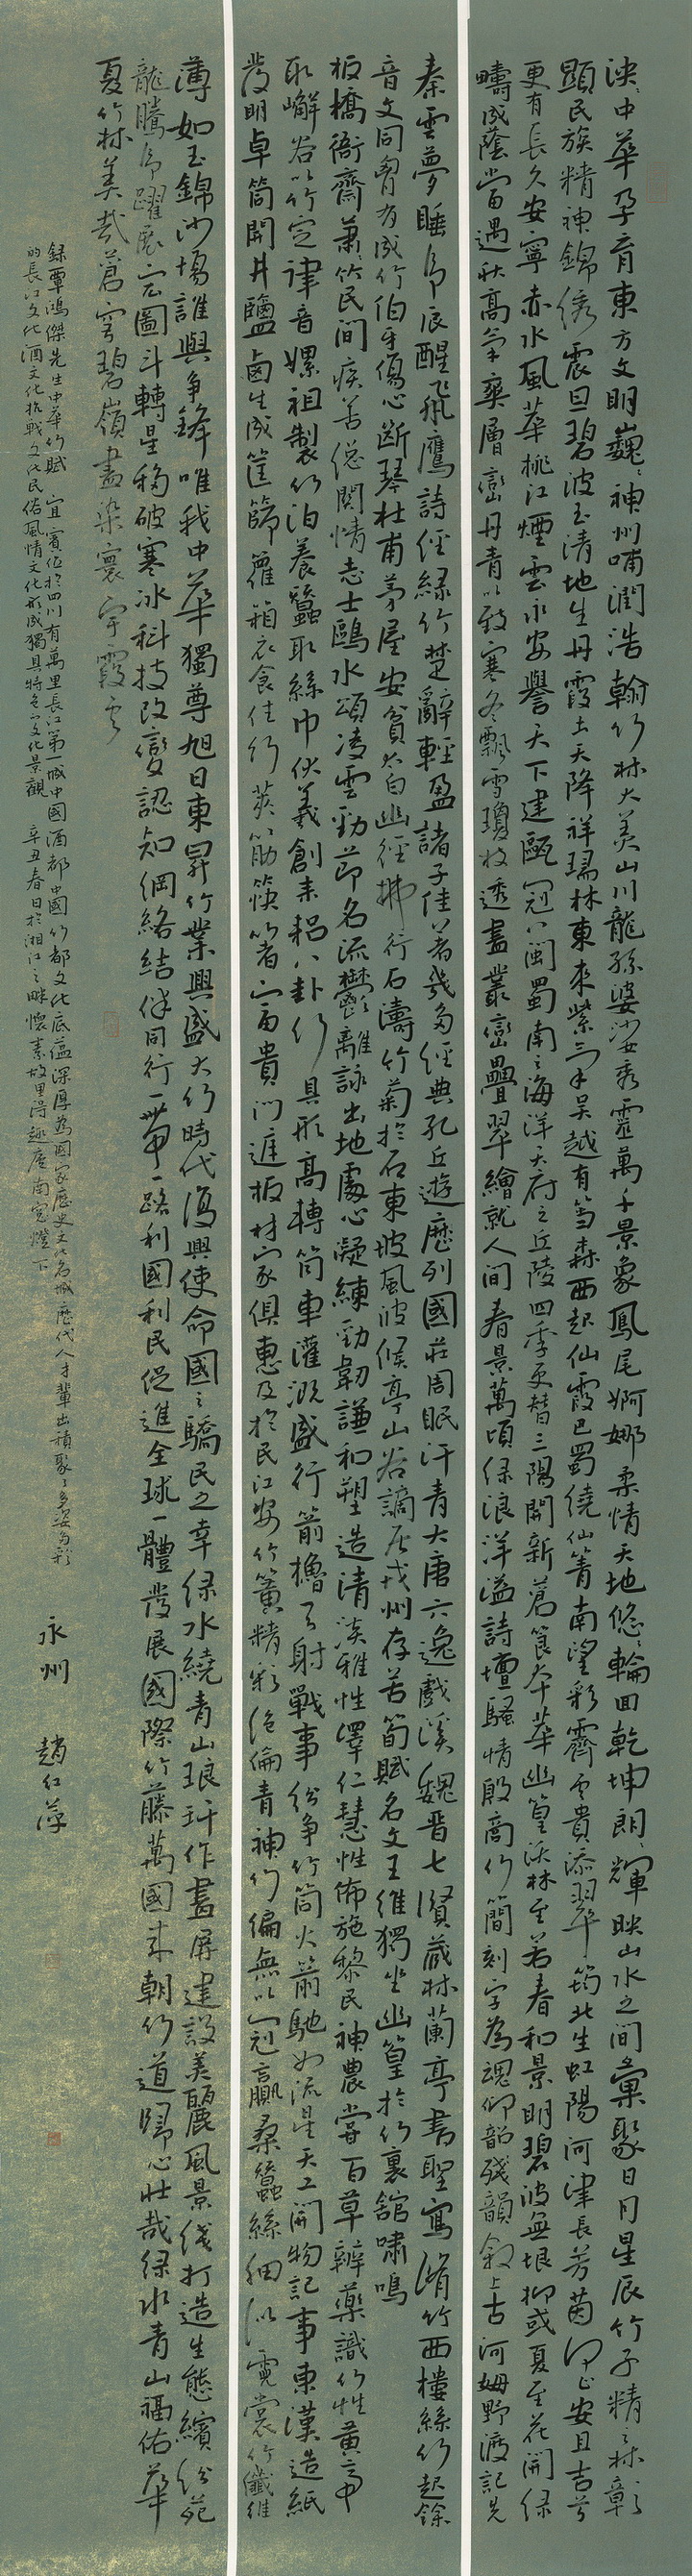 泱々中華孕育東方文明巍々神州哺潤浩翰竹林大美山川龍孫婆娑秀靈萬千景象鳳尾婀娜柔情天地悠々輪回乾坤朗々輝映山水之間彙聚日月星辰竹子精々林彰
顯民族精神錦綉震旦碧波玉清地生丹霞土天降祥瑞林東來紫三吳越有篤森西起仙霞巴蜀繞仙箐南望彩霽雲貴添翠筠北生虹陽河津長芳茵安且吉兮
更有長久安寧赤水風華桃江煙雲永安譽天下建甌冠八閩蜀南之海洋天府之丘陵四季更替三陽開新蒼筤本華幽篁沃林至若春和景明碧波無垠抑或夏至花開綠
疇成蔭當遇秋高氣爽層巒丹青以致寒冬飄雪瓊枝透晝叢巒疊翠繪就人間春景萬頃綠浪洋溢詩壇騷情殷商竹簡刻字為魂仰韶殘韻敘上古河姆野渡記先
秦雲夢睡虎辰醒飛鷹詩經綠竹楚辭輕盈諸子佳著幾多經典孔丘遊歷列國莊周眠汗青大唐六逸戲溪魏晋七賢藏林蘭亭書聖寫脩竹西樓絲竹起餘
音文同胸有成竹伯牙傷心斷琴杜甫茅屋安貧太白幽徑拂行石濤竹菊於石東坡風波候亭山谷謫居戎州存苦筍賦名文王維獨坐幽篁於竹裏舘嘯鳴
板橋衙齋蕭々竹民間疾苦總關情志士鷗水頌凌雲勁節名流鬱離詠出地處心凝練勁韌謙和塑造清淡雅性澤仁慧性佈施黎民神農嘗百草辨藥識竹性黃帝
取嶰谷以竹定律音嫘祖製竹泊養蠶取絲巾伏羲創耒耜八卦竹具形高轉筒車灌溉盛行箭櫓弓射戰事紛争竹筒火箭馳如流星天工開物記事東漢造紙
發明卓筒開井鹽鹵生成筐篩籮箱衣食住行筴筋筷箸富貴門進板材家俱惠及於民江安竹簧精彩絕倫青神竹編無以冠贏桑蠶絲細似霓裳竹纖維
薄如玉錦沙場誰與争鋒唯我中華獨尊旭日東昇竹業興盛大竹時代復興使命國之驕民之幸綠水繞青山琅玕作畫屏建設美麗風景线打造生態繽紛苑
龍騰虎躍展宏圖斗轉星移破寒冰科技改變認知網絡結伴同行一帶一路利國利民促進全球一體發展國際竹藤萬國来朝竹道歸心壯哉綠水青山福佑華
夏竹林美哉蒼穹碧嶺盡染寰宇霞雲
録覃鴻傑先生中華竹賦 宜賓位於四川有萬里長江第一城中國酒都中國竹都文化底蕴深厚為國家歷史文化名城歷代人才輩出積聚了多姿多彩
的長江文化酒文化抗戰文化民俗風情文化形成獨具特色文化景觀 辛丑春日於湘江之畔懷素故里得趣廬南窗燈下
永州 趙紅萍